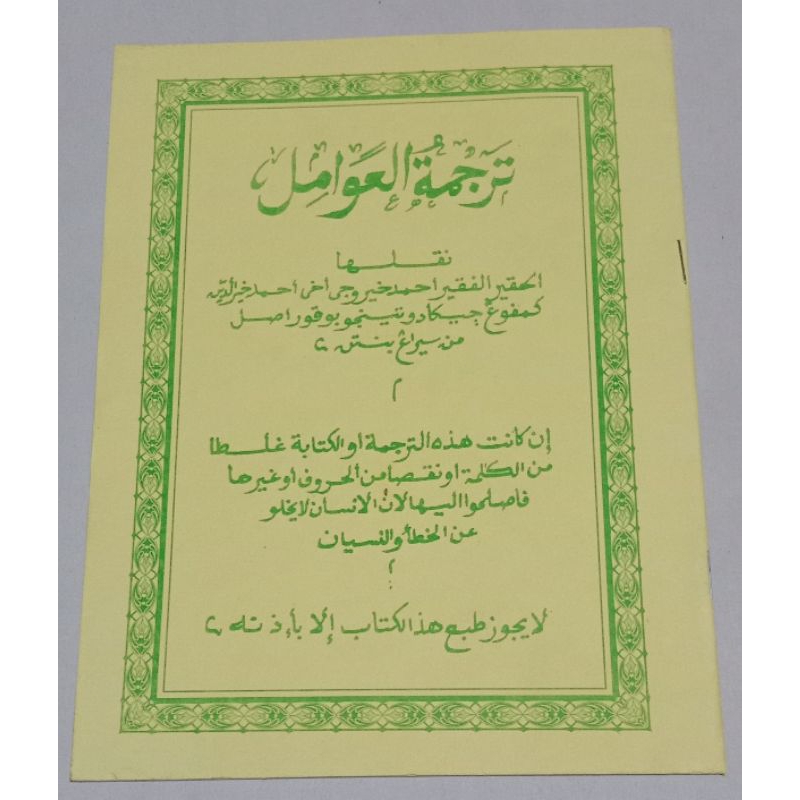 ترجمة العوامل
نقلها
الحقير الفقير احمد خيروجى اخى احمد خير الدين
كمفوڠ جيكادو بوقور اصل
من سيراڠ بنتن
م
إن كانت هذه الترجمة او الكتابة غلطا
من الكلمة او نقصا من الحروف او غيرها
فاصلحوا اليها لان الانسان لايخلو
عن الخطأ والنسيان
م
لايجوز طبع هذ الكتاب إلا بأذنه